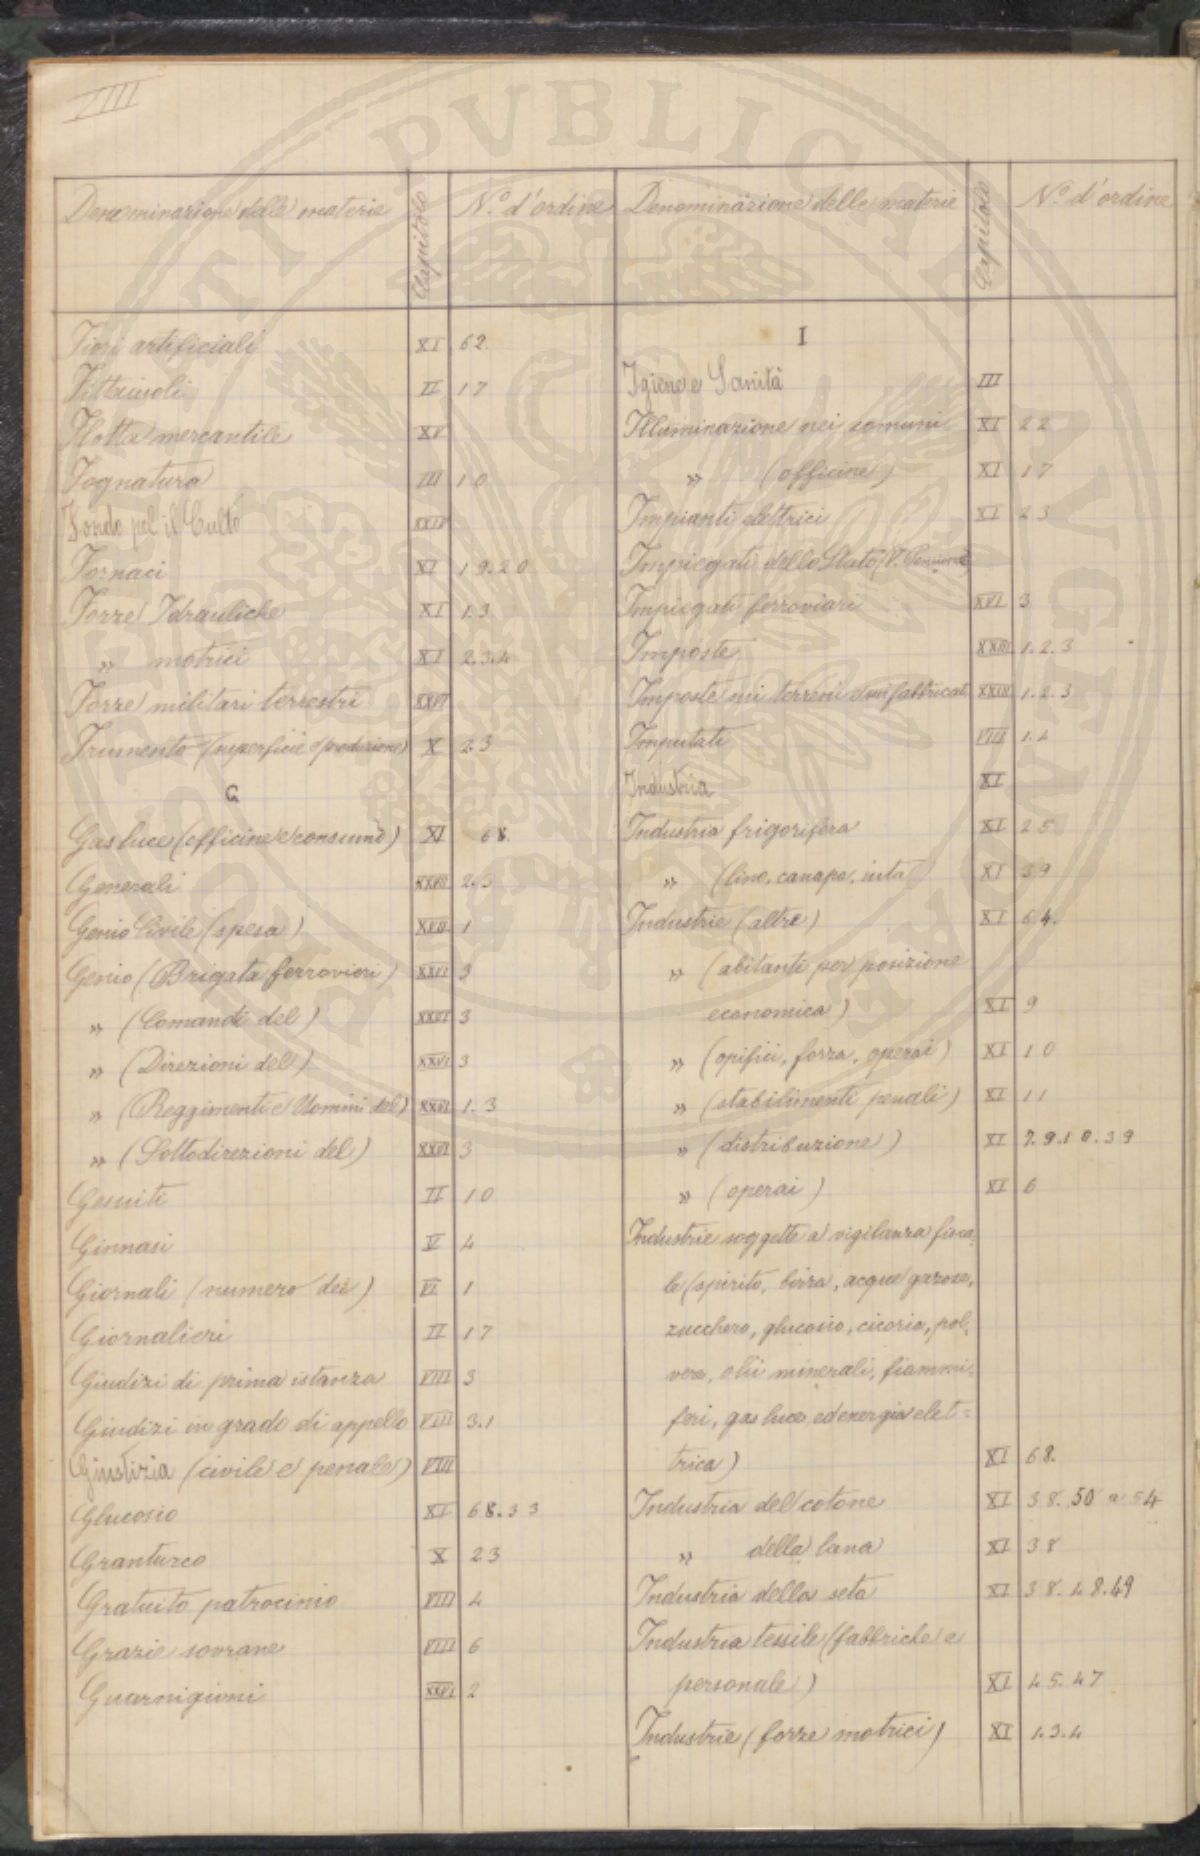 VIII
Denominazione delle materie Capitolo N.º d'ordine
Fiori artificiali XI 62.
Fittaiuoli II 17
Flotta mercantile XV
Fognatura III 10
Fondo pel il Culto XXIV
Fornaci XI 19.20
Forze Idrauliche XI 1.3
" motrici XI 2.3.4
Forze militari terrestri XXVI
Frumento (superficie e produzione) X 2.3
G
Gas luce (officine e consumo) XI 68.
Generali XXVI 2.3
Genio Civile (spesa) XVII 1
Genio (Brigata ferrovieri) XXVI 3
" (Comandi del) XXVI 3
" (Direzioni del) XXVI 3
" (Reggimenti e Uomini del) XXVI 1.3
" (Sottodirezioni del) XXVI 3
Gesuiti II 10
Ginnasi V 4
Giornali (numero dei) VI 1
Giornalieri II 17
Giudizi di prima istanza VIII 3
Giudizi in grado di appello VIII 3.1
Giustizia (civile e penale) VIII
Glucosio XI 68.33
Granturco X 23
Gratuito patrocinio VIII 4
Grazie sovrane VIII 6
Guarnigioni XXVI 2
Denominazione delle materie Capitolo N.º d'ordine
I
Igiene e Sanità III
Illuminazione nei comuni XI 22
" (officine) XI 17
Impianti elettrici XI 23
Impiegati dello Stato (V. Pensioni)
Impiegati ferroviari XVI 3
Imposte XXIII 1.2.3
Imposte sui terreni e sui fabbricati XXIII 1.2.3
Imputati VIII 1.4
Industria XI
Industria frigorifera XI 25
" (lino, canapa, iuta) XI 39
Industrie (altre) XI 64.
" (abitanti per posizione
economica) XI 9
" (opifici, forza, operai) XI 10
" (stabilimenti penali) XI 11
" (distribuzione) XI 7.9.10.39
" (operai) XI 6
Industrie soggette a vigilanza fisca-
le (spirito, birra, acque gazose,
zucchero, glucosio, cicoria, pol-
vere, olii minerali, fiammi-
feri, gas luce, ed energia elet=
trica) XI 68.
Industria del cotone XI 38. 50 a 54
" della lana XI 38
Industria della seta XI 38.48.49
Industria tessile (fabbriche e
personale) XI 45.47
Industrie (forze motrici) XI 1.3.4